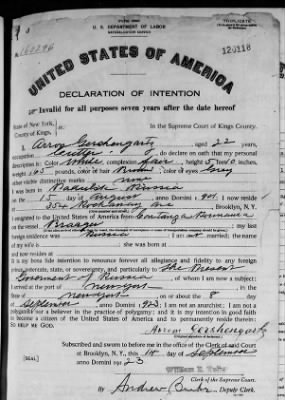 TRIPLICATE
U. S. DEPARTMENT OF LABOR
NATURALIZATION SERVICE
120118
UNITED STATES OF AMERICA
DECLARATION OF INTENTION
Invalid for all purposes seven years after the date hereof
State of New York,
County of Kings,
In the Supreme Court of Kings County.
I, Aron Gershengartz, aged 22 years,
occupation Cutter, do declare on oath that my personal
description is: Color White, complexion Fair, height 5 feet 0 inches,
weight 145 pounds, color of hair Brown, color of eyes Grey
other visible distinctive marks none
I was born in Russia
on the 15 day of August, anno Domini 1901; I now reside
at Ave, Brooklyn, N. Y.
I emigrated to the United States of America from Constanza Roumania
on the vessel Braga; my last
foreign residence was Russia; I am not married; the name
of my wife is ; she was born at
and now resides at
It is my bona fide intention to renounce forever all allegiance and fidelity to any foreign
prince, potentate, state, or sovereignty, and particularly to The Present
Government of Russia, of whom I am now a subject;
I arrived at the port of New York, in the
State of New York, on or about the 8 day
of September, anno Domini 192; I am not an anarchist; I am not a
polygamist nor a believer in the practice of polygamy; and it is my intention in good faith
to become a citizen of the United States of America and to permanently reside therein:
SO HELP ME GOD.
Aron Gershengartz
Subscribed and sworn to before me in the office of the Clerk of said Court
at Brooklyn, N. Y., this day of September
anno Domini 1923
[SEAL]
William E. Kelly
Clerk of the Supreme Court.
By Andrew, Deputy Clerk.